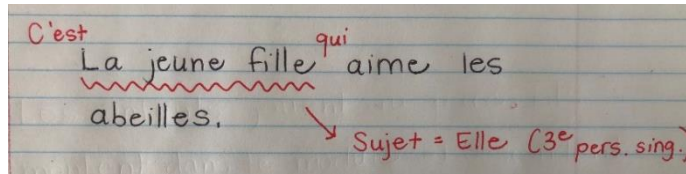 C'est qui
La jeune fille aime les
abeilles.
Sujet = Elle (3e pers. sing.)